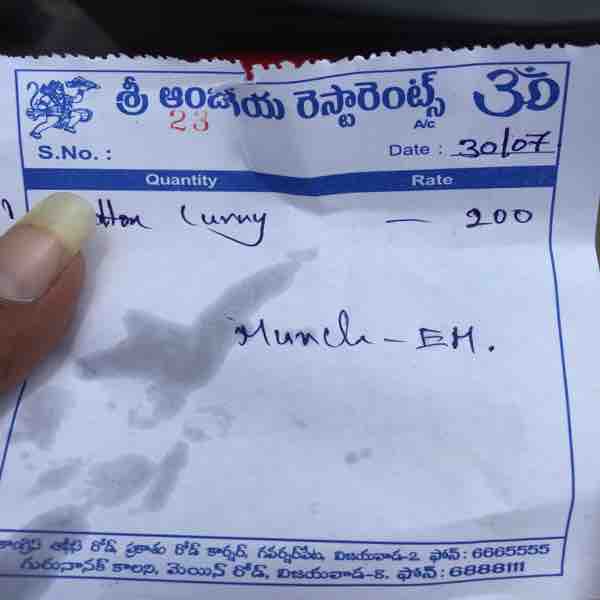 శ్రీ ఆంజనేయ రెస్టారెంట్స్
A/c
23
S.No. : Date : 30/07
Quantity Rate
Curry — 200
Munch - EM.
కాంగ్రెస్ ఆఫీస్ రోడ్, ప్రకాశం రోడ్ కార్నర్, గవర్నర్‌పేట, విజయవాడ-2. ఫోన్ : 6665555
గురునానక్ కాలని, మెయిన్ రోడ్, విజయవాడ-8. ఫోన్ : 6888111